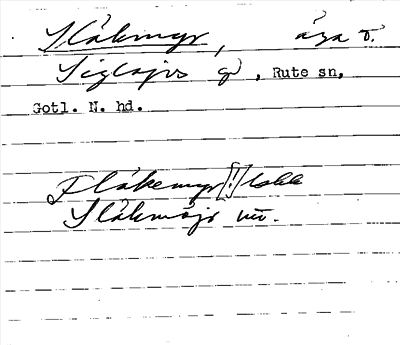 Slåkmyr, äga t.
Siglajvs gd, Rute sn,
Gotl. N. hd.
Flåkemyr [!]
Slåkmöjr